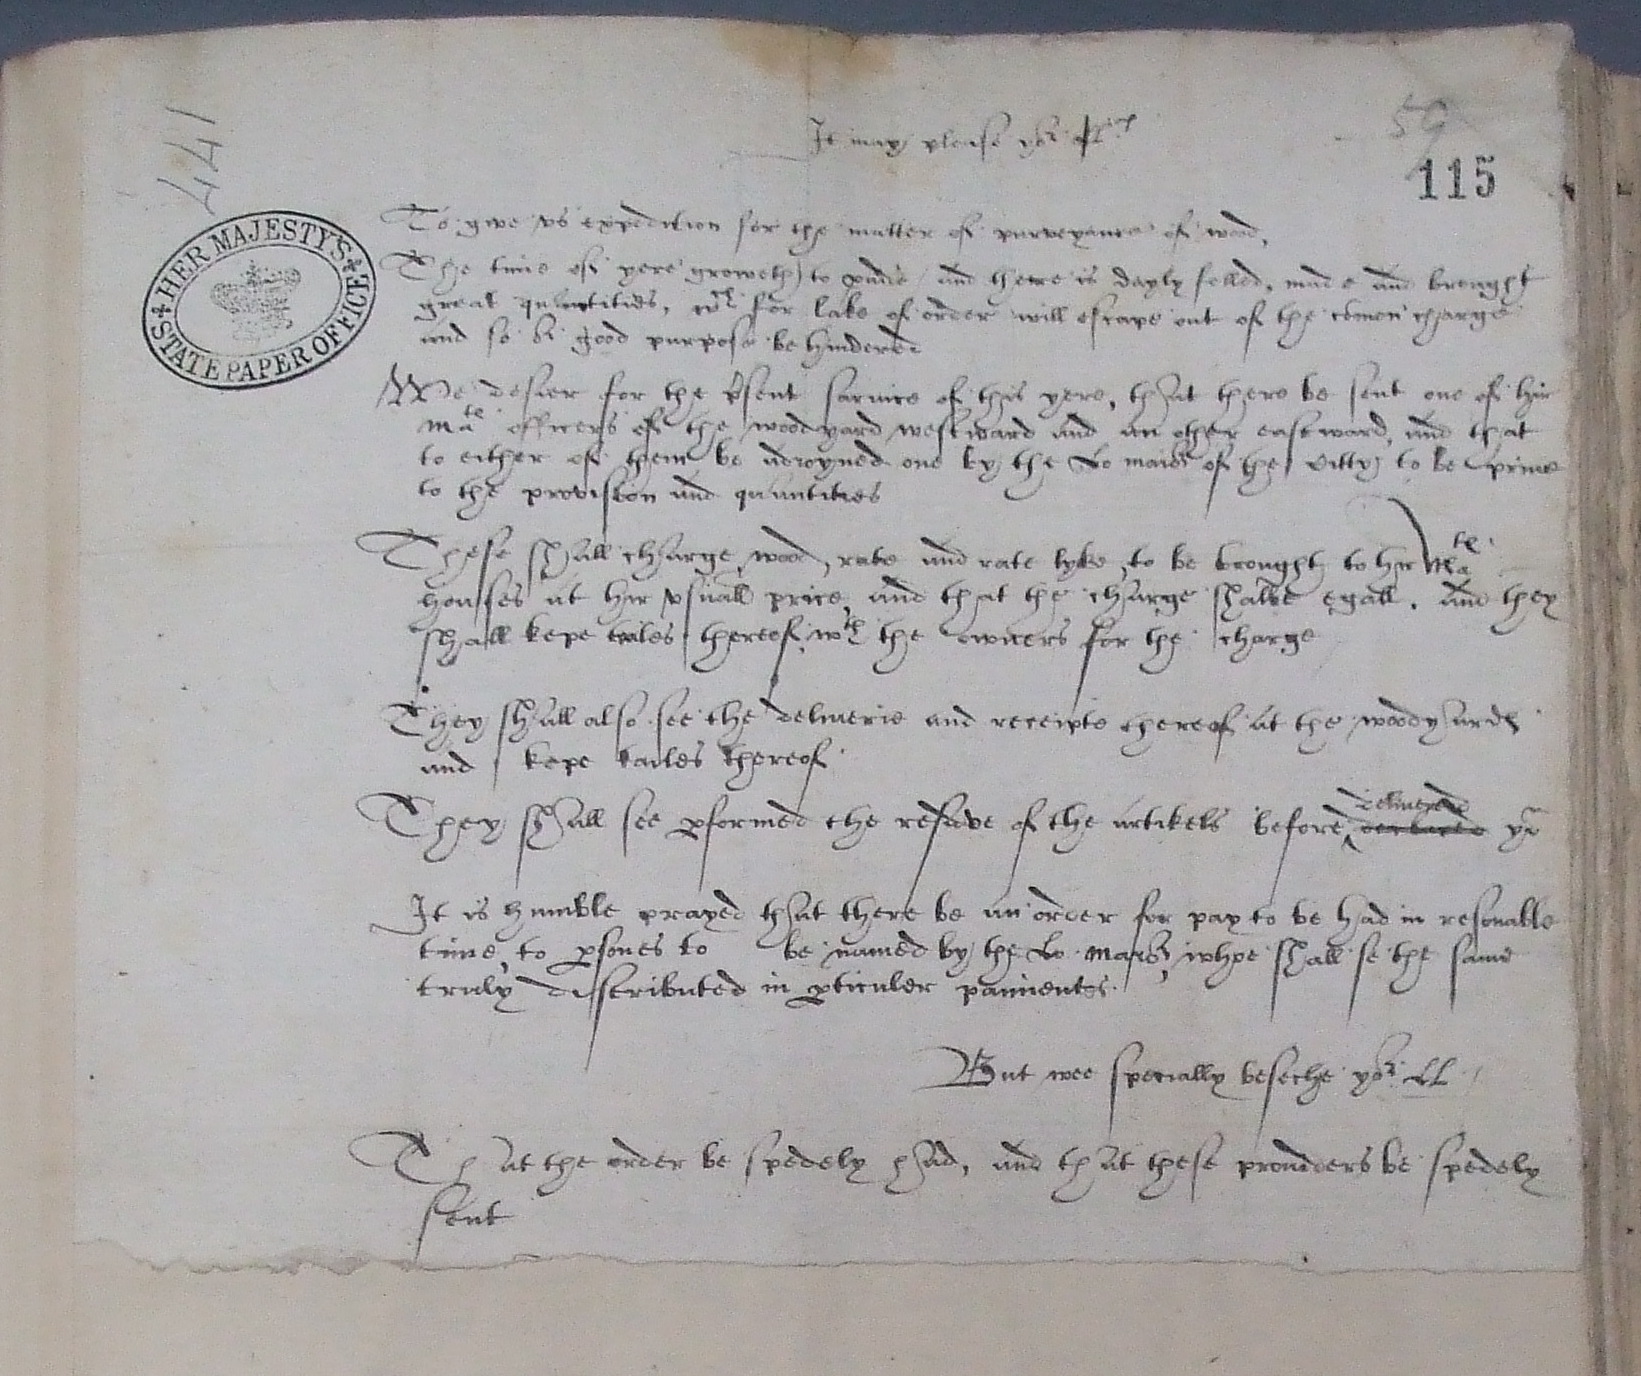 59
115
441
HER MAJESTY'S STATE PAPER OFFICE
It may please yor
To give vs expedition for the matter of purveyance of wood,
The time of yere groweth to and there is dayly felled, made and brought
great quantities, wch for lake of order will escape out of the comen charge
and so good purpose be hindered
We desier for the psent service of this yere, that there be sent one of hir
Mate officers of the woodyard westward and an other eastward, and that
to either of them be adioyned one by the Lo maior of the Citty to be privie
to the provision and quantities
These shall charge wood, rate and rate lyke, to be brought to hir Mate
houses at hir vsuall price, and that the charge shalbe egall. And they
shall kepe tailes thereof wth the owners for the charge
They shall also see the deliuerie and receipte thereof at the woodyardes
and kepe tailes thereof
They shall see pformed the residve of the artikels before delivered yor
It is humble prayed that there be an order for pay to be had in resonable
time, to psones to be named by the Lo. maior, whoe shall se the same
truly distributed in pticuler paimentes.
But wee specially beseche yor LL
That the order be spedely had, and that these prouiders be spedely
sent